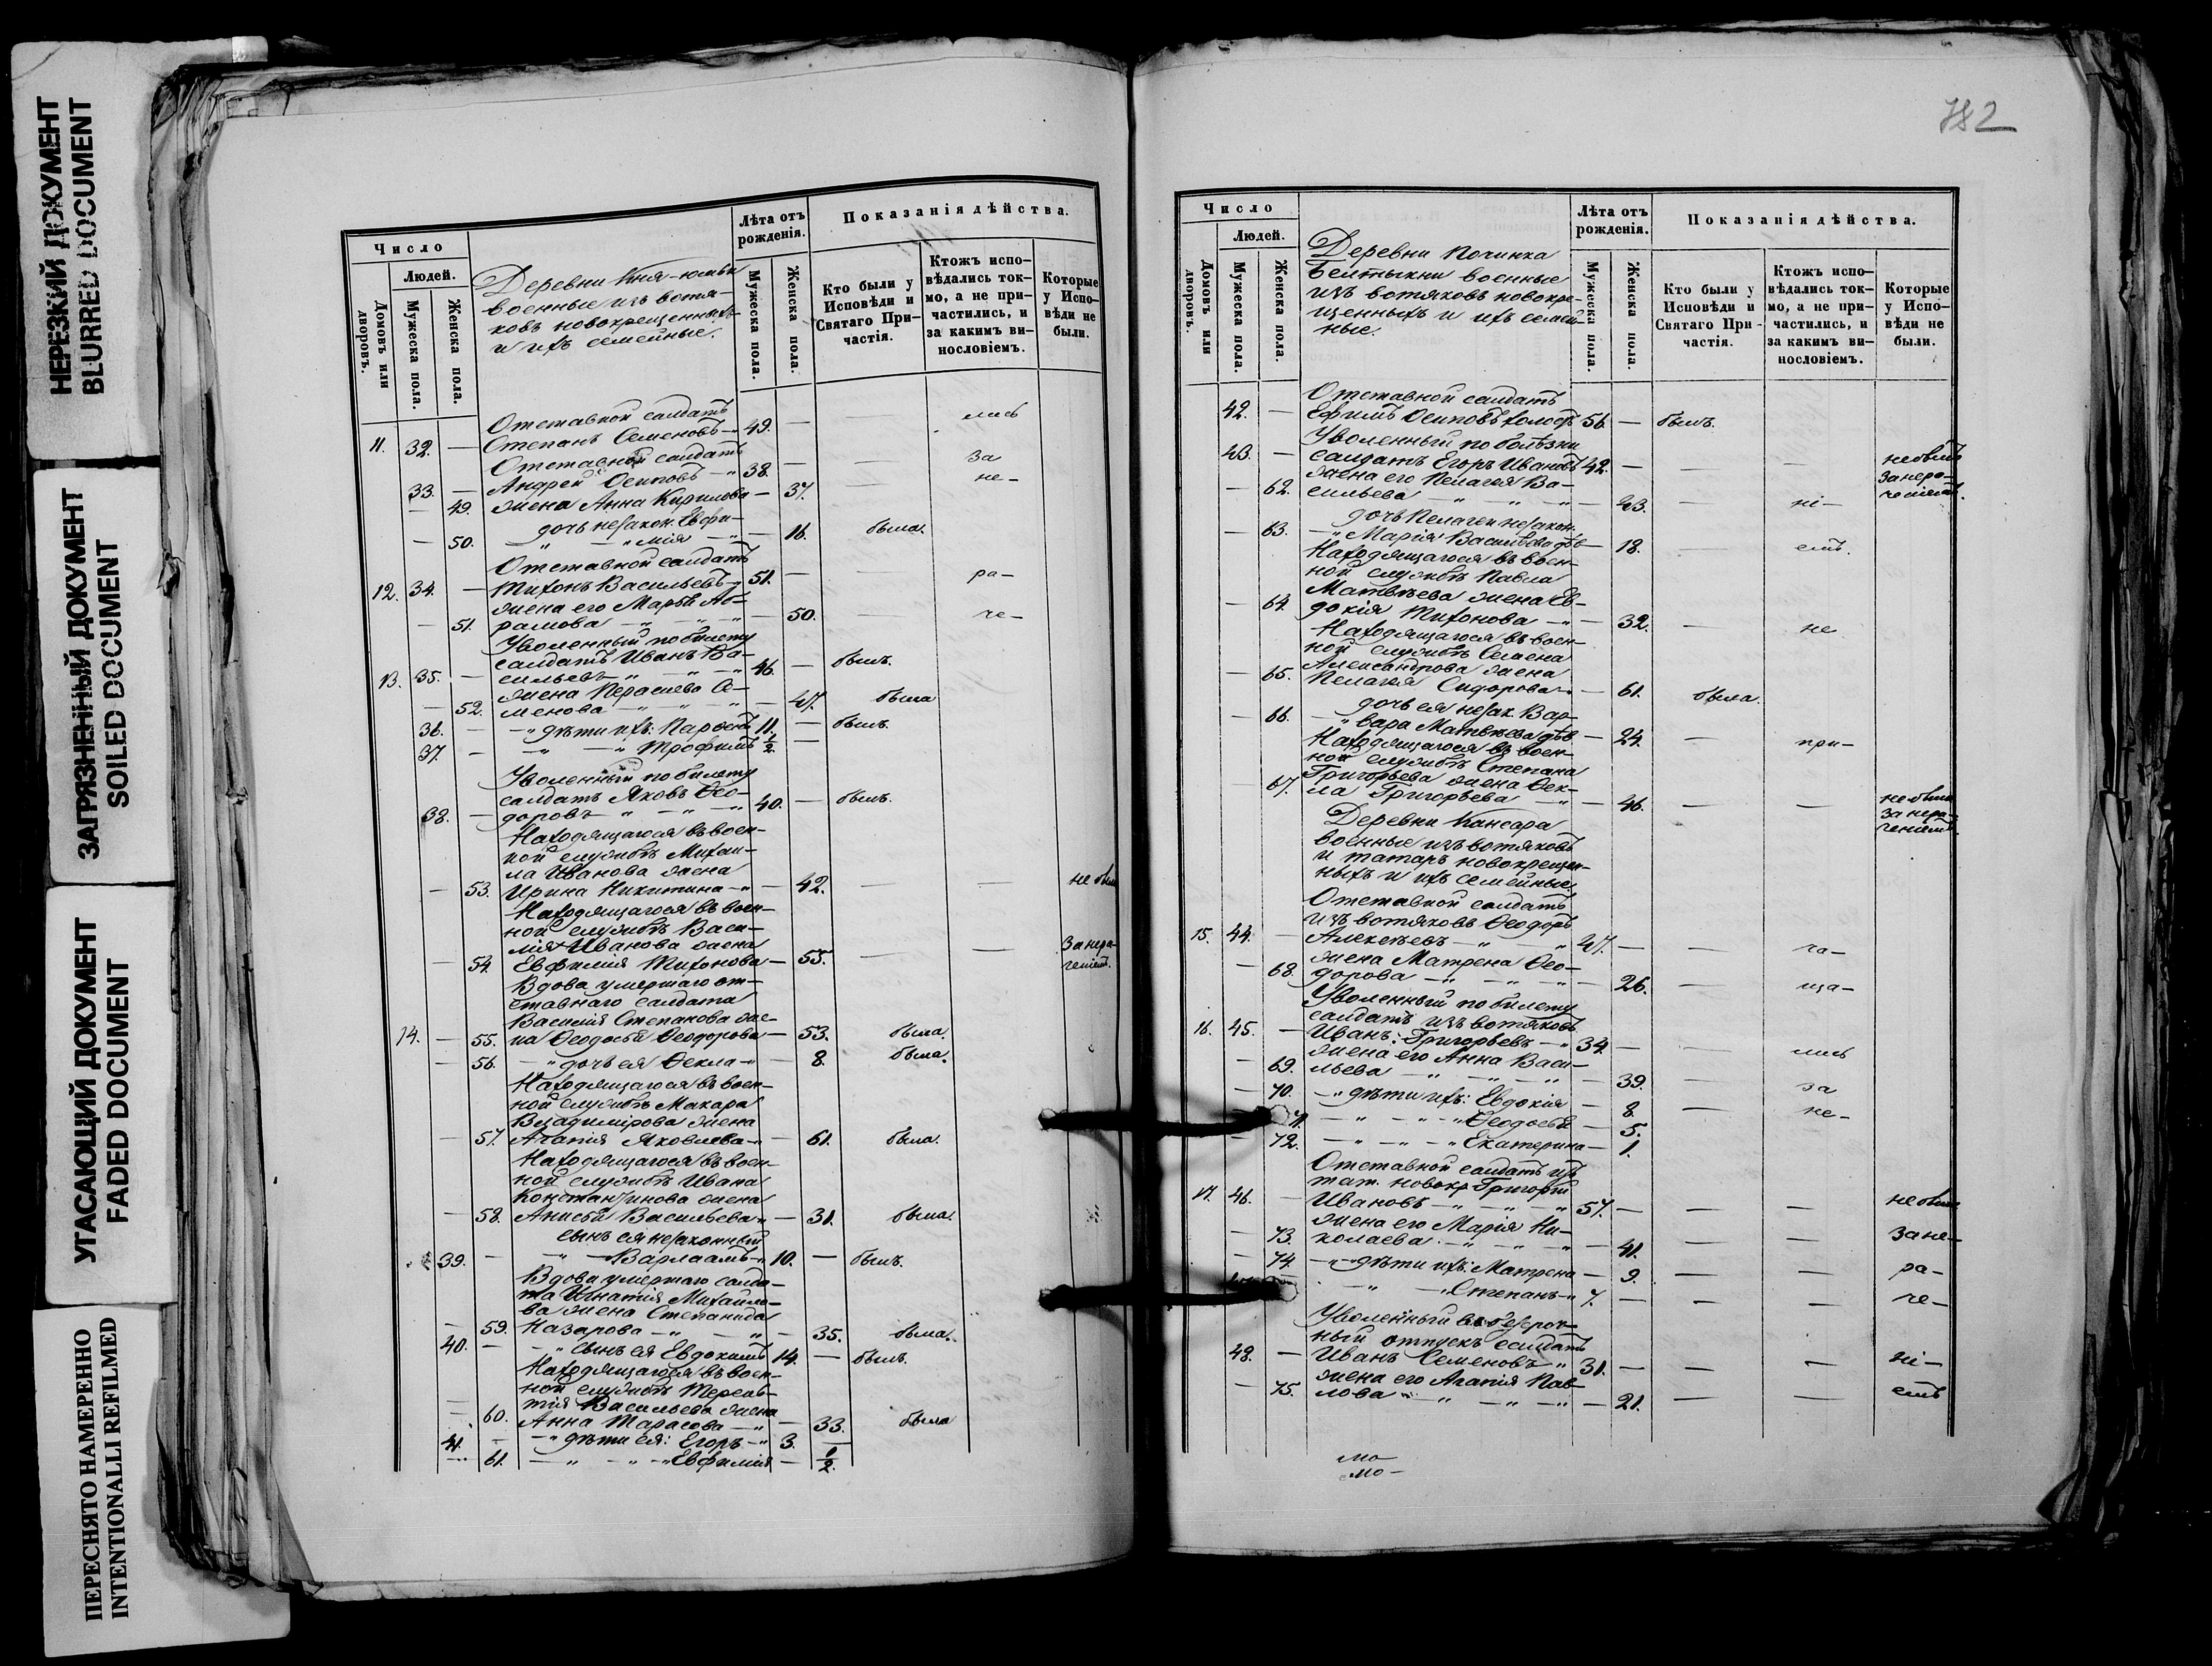 НЕРЕЗКИЙ ДОКУМЕНТ
BLURRED DOCUMENT
ЗАГРЯЗНЕННЫЙ ДОКУМЕНТ
SOILED DOCUMENT
УГАСАЮЩИЙ ДОКУМЕНТ
FADED DOCUMENT
ПЕРЕСНЯТО НАМЕРЕННО
INTENTIONALLI REFILMED
Число
Людей.
Домовъ или дворовъ.
Мужеска пола.
Женска пола.
Деревни Кня-юмьи
военные изъ вотя-
ковъ новокрещенныхъ
и ихъ семейные.
Лѣта отъ
рожденія.
Мужеска пола.
Женска пола.
Показанія дѣйства.
Кто были у
Исповѣди и
Святаго При-
частія.
Ктожъ испо-
вѣдались ток-
мо, а не при-
частились, и
за какимъ ви-
нословіемъ.
Которые
у Испо-
вѣди не
были.
Отставной салдатъ
11. 32. — Степанъ Семеновъ — 49. — — лись
Отставной салдатъ
33. — Андрей Осиповъ — " 38. — — за
— 49. жена Анна Кирилова — 37. — не-
дочь незакон. Евфи-
— 50. " — " мія — " — 16. была.
Отставной салдатъ
12. 34. — Тихонъ Васильевъ — 51. — — ра-
жена его Марья Аб-
— 51. рамова — " — " — 50. — че-
Уволенный по билету
салдатъ Иванъ Ва-
13. 35. — сильевъ — " — " — " 46. — былъ.
жена Се-
— 52. менова — " — " — 47. была
36. — — " дѣти ихъ: 11. — былъ.
37. — — " — " Трофимъ 1/2. —
Уволенный по билету
салдатъ Яковъ Ѳео-
38. — доровъ — " — " — " 40. — былъ.
Находящагося въ воен-
ной службѣ Михаи-
ла Иванова жена
— 53. Ирина Никитина — " — 42. — — не был
Находящагося въ воен-
ной службѣ Васи-
лія Иванова жена
— 54. Евфимія Тихонова — 55. — — за нера-
ченіем.
Вдова умершаго от-
ставнаго салдата
Василія Степанова же-
14. — 55. на Ѳеодосья Ѳеодорова — 53. была.
— 56. — " дочь ея Ѳекла — " — 8. была.
Находящагося въ воен-
ной службѣ Макара
Владимірова жена
— 57. Агапія Яковлева — " — 61. была.
Находящагося въ воен-
ной службѣ Ивана
Константинова жена
— 58. Анисья Васильева " — 31. была.
сынъ ея незаконный
39. — — " — Варлаамъ — " 10. — былъ.
Вдова умершаго салда-
та Игнатія Михайло-
ва жена Степанида
— 59. Назарова — " — " — 35. была.
40. — — " сынъ ея Евдокимъ 14. — былъ.
Находящагося въ воен-
ной службѣ
Васильева жена
— 60. Анна Тарасова — " — 33. была
41. — — " дѣти ея: Егоръ — " 3. —
— 61. — " — " — " Евфимія — 1/2.
782
Число
Людей.
Домовъ или дворовъ.
Мужеска пола.
Женска пола.
Деревни Починка
Белтыкни военные
изъ вотяковъ новокре-
щенныхъ и ихъ семей-
ные.
Лѣта отъ
рожденія.
Мужеска пола.
Женска пола
Показанія дѣйства.
Кто были у
Исповѣди и
Святаго При-
частія.
Ктожъ испо-
вѣдались ток-
мо, а не при-
частились, и
за какимъ ви-
нословіемъ.
Которые
у Испо-
вѣди не
были.
Отставной салдатъ
42. — Ефимъ Осиповъ холост. 56. — былъ.
Уволенный по болѣзни
43. — салдатъ Егоръ Ивановъ 42. — — — не былъ
жена его Пелагея Ва- за нера-
— 62. сильева — " — " — " — 43. — ні- ченіемъ.
дочь Пелагеи незакон.
— 63. — " Марія Васильева дѣв. — 18. — емъ.
Находящагося въ воен-
ной службѣ Павла
Матвѣева жена Ев-
— 64. докія Тихонова — " — 32. — не
Находящагося въ воен-
ной службѣ Семена
Александрова жена
— 65. Пелагея Сидорова " — 61. была.
дочь ея незак. Вар-
— 66. — " вара Матвѣева дѣв. — 24. — при-
Находящагося въ воен-
ной службѣ Степана
Григорьева жена Ѳек-
— 67. ла Григорьева — " — 46. — — не была
за нера-
ченіемъ.
Деревни Кансара
военные изъ вотяковъ
и татаръ новокрещен-
ныхъ и ихъ семейные.
Отставной салдатъ
изъ вотяковъ Ѳеодоръ
15. 44. — Алексѣевъ — " — " 47. — — ча-
жена Матрена Ѳео-
— 68. дорова — " — " — " — 26. — ща-
Уволенный по билету
салдатъ изъ вотяковъ
16. 45. — Иванъ Григорьевъ — " 34. — — лись
жена его Анна Васи-
— 69. льева — " — " — " — 39. — за
— 70. — " дѣти ихъ: Евдокія — 8. — не-
71. — " — " — " Ѳеодосья — 5.
— 72. — " — " — " Екатерина — 1.
Отставной салдатъ изъ
тат. новокр. Григорій
17. 46. — Ивановъ — " — " — " 57. — — — не был
жена его Марія Ни-
— 73. колаева. — " — " — " — 41. — — за не-
— 74. — " дѣти ихъ: Матрена — 9. — — ра-
" — " Степанъ — " 7. — — — че-
Уволенный въ безсроч-
ный отпускъ салдатъ
48. — Иванъ Семеновъ — " 31. — — — ні-
жена его Агапія Пав-
— 75. лова — " — " — " — 21. — — емъ
мо
мо-